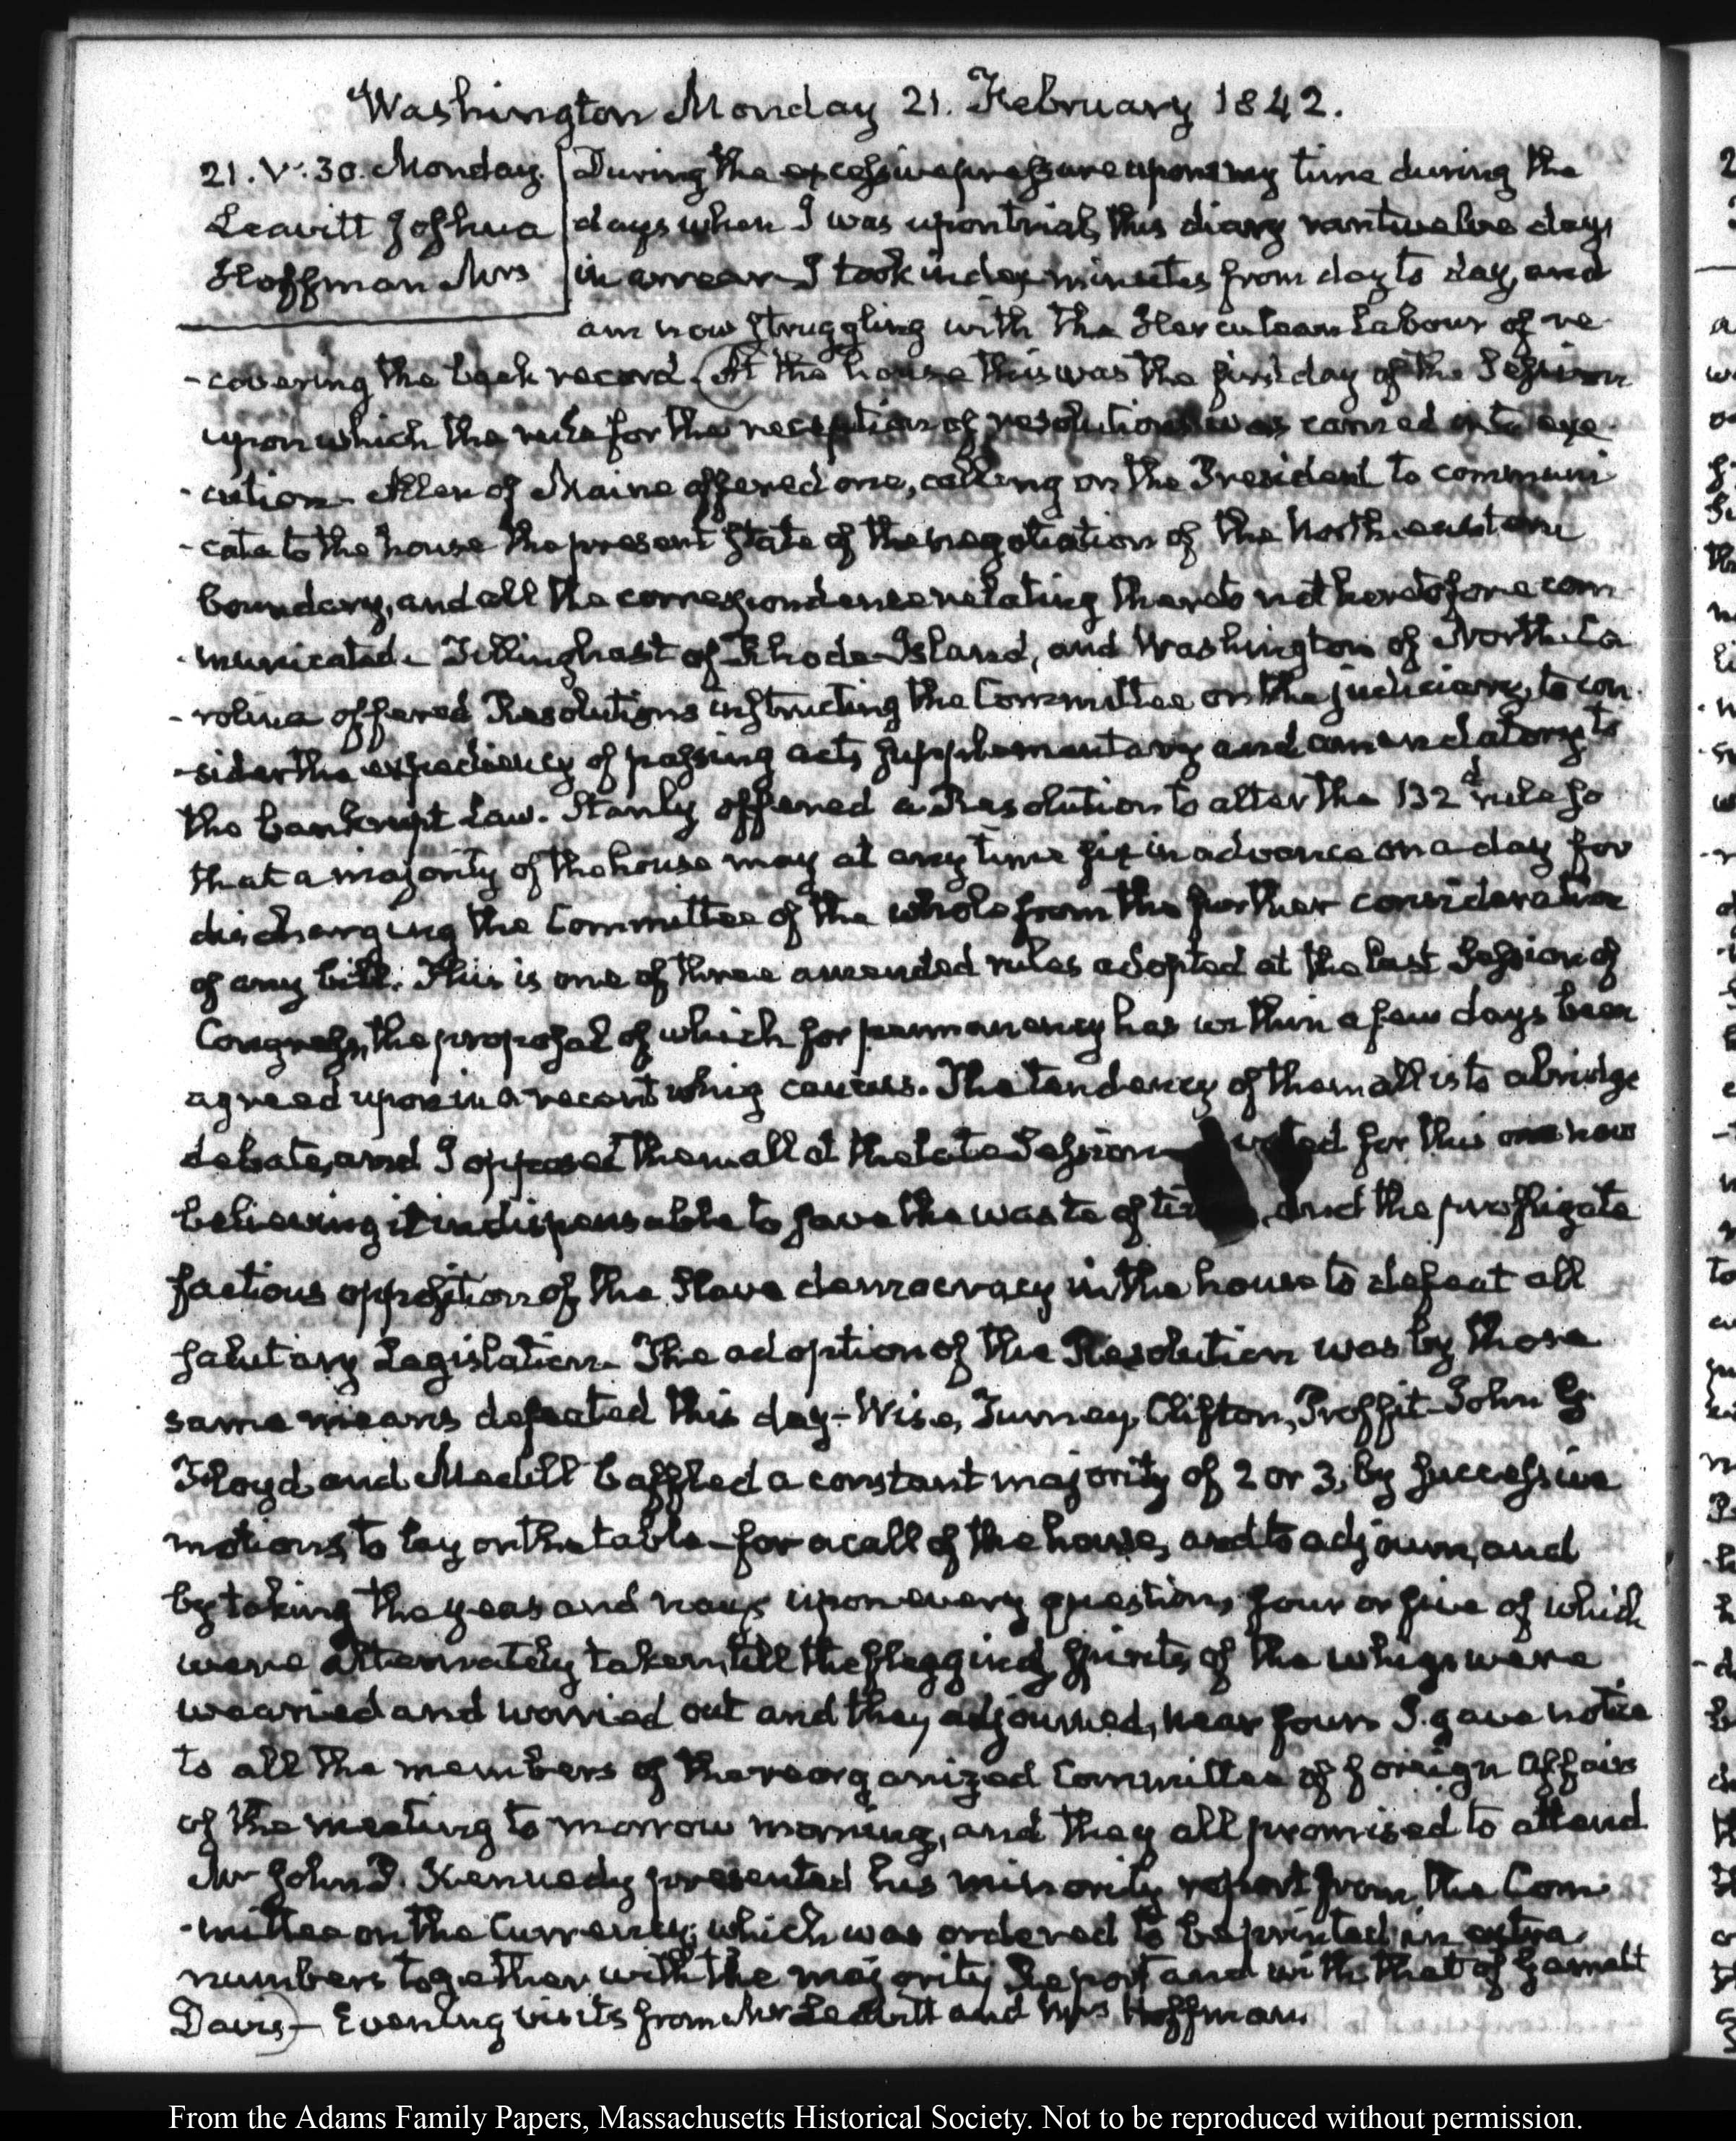 Washington Monday 21. February 1842.
21. V. 30. Monday.
Leavitt Joshua
Hoffman Mrs
During the excessive pressure upon my time during the
days when I was upon trial, this diary ran twelve days
in arrear I took index minutes from day to day, and
am now struggling with the Herculean Labour of re-
-covering the back record. (At the house this was the first day of the Session
upon which the rule for the reception of resolutions was carried into exe-
-cution. Allen of Maine offered one, calling on the President to communi-
-cate to the house the present state of the negotiation of the North-eastern
boundary, and all the correspondence relating thereto not heretofore com-
-municated. Tillinghast of Rhode-Island, and Washington of North-Ca-
-rolina offered Resolutions instructing the Committee on the judiciary, to con-
-sider the expediency of passing acts, supplementary and amendatory to
the bankrupt Law. Stanly offered a Resolution to alter the 132d rule so
that a majority of the house may at any time fix in advance on a day for
discharging the Committee of the whole from the further consideration
of any bill. This is one of three amended rules adopted at the last Session of
Congress, the proposal of which for permanency has within a few days been
agreed upon in a recent whig caucus. The tendency of them all is to abridge
debate, and I opposed them all at the late Session voted for this one now
believing it indispensable to save the waste of , and the profligate
factious opposition of the Slave democracy in the house to defeat all
salutary Legislation. The adoption of the Resolution was by those
same means defeated this day- Wise, Turney, Clifton, Proffit- John G.
Floyd and Medill baffled a constant majority of 2 or 3, by successive
motions, to lay on the table- for a call of the house, and to adjourn, and
by taking the yeas and nays upon every question, four or five of which
were alternately taken, till the flagging spirits of the whigs were
wearied and worried out and they adjourned, near four. I gave notice
to all the members of the reorganized Committee of foreign Affairs
of the meeting to morrow morning, and they all promised to attend
Mr John P. Kennedy presented his minority report from the Com-
-mittee on the Currency, which was ordered to be printed in extra
numbers together with the majority Report and with that of Garrett
Davis)- Evening visits from Mr Leavitt and Mrs Hoffman.
From the Adams Family Papers, Massachusetts Historical Society. Not to be reproduced without permission.